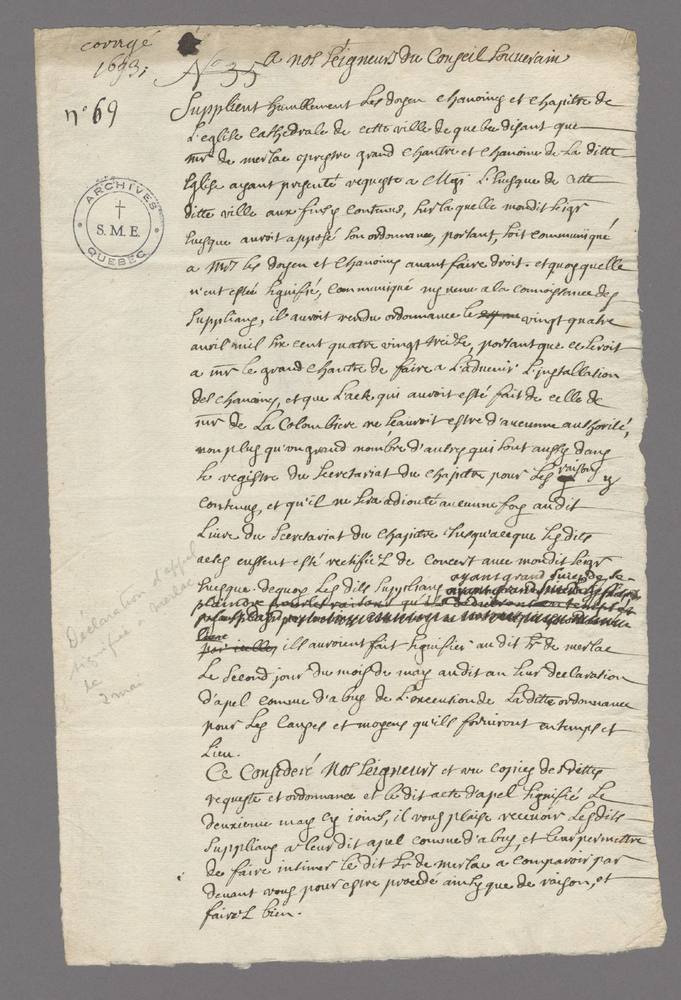 corrigé
1693;
N° 35
A nos Seigneurs du Conseil Souverain
n° 69
ARCHIVES
S.M.E.
QUEBEC
Supplient humblement Les doyen chanoines et chapitre de
L'eglise Cathedrale de cette ville de quebec disant que
mr de merlac prestre grand chantre et chanoine de La ditte
Eglise ayant presenté requeste a Mgr L'Evesque de cette
ditte ville aux fins y contenues, sur laquelle mondit seigr
Evesque auroit apposé son ordonnance, portant, soit communiqué
a Mrs les doyen et chanoines avant faire droit. et quoy quelle
n'eut esté signifié, communiqué ny venue a la connoissance des
supplians, il auroit rendu ordonnance le vingt quatre
avril mil six cent quatre vingt treize, portant que ce seroit
a mr le grand chantre de faire a L'advenir L'installation
des chanoines, et que L'acte qui auroit esté fait de celle de
mr de La Colombiere ne sçauroit estre d'aucune authorité,
non plus qu'un grand nombre d'autres qui sont aussy dans
le registre du secretariat du chapitre pour les raisons y
contenues, et qu'il ne sera adiouté aucune foy audit
Livre du secretariat du chapitre jusqu'aceque lesdits
actes eussent esté rectifiez de concert avec mondit seigr
Evesque. dequoy Les dits supplians ayant grand sujet de se
plaindre
Lieu
par icelles ils auroient fait signifier audit sr de merlac
Le second jour du mois de may audit an leur declaration
d'apel comme d'abus de L'execution de La ditte ordonnance
pour Les causes et moyens qu'ils fourniront en temps et
Lieu.
Ce Consideré Nos seigneurs et veu copies desdittes
requeste et ordonnance et ledit acte d'apel signifié Le
deuxieme may cy joints, il vous plaise recevoir Lesdits
supplians a leur dit apel comme d'abus, et leur permettre
de faire intimer le dit sr de merlac a comparoir par
devant vous pour estre procedé ainsy que de raison, et
ferez bien.
Déclaration d'appel
signifiée Merlac
le
2 mai